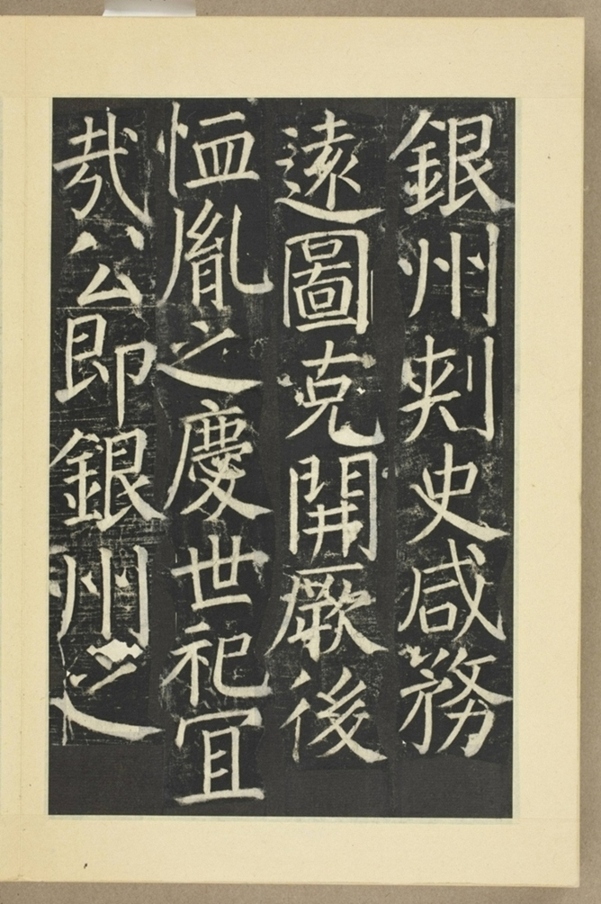 銀州刺史咸務
遠圖克開厥後
恤胤之慶世祀冝
哉公即銀州之